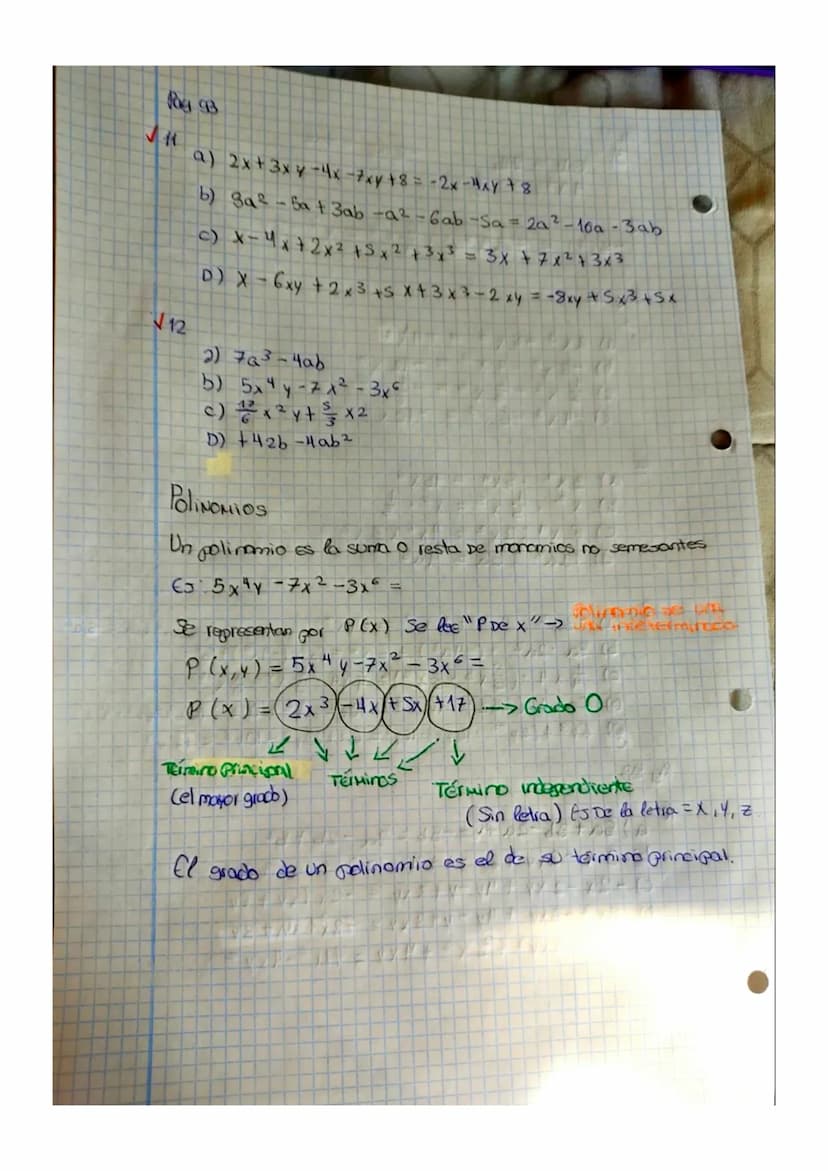 Pag 93
11
a) 2x + 3xy - 4x - 7xy + 8 = -2x - 4xy + 8
b) 3a² - 5a + 3ab - a² - 6ab - 5a = 2a² - 10a - 3ab
c) x - 4x + 2x² + 5x² + 3x³ = 3x + 7x² + 3x3
D) x - 6xy + 2x3 + 5x + 3x3 - 2xy = -8xy + 5x3 + 5x
12
a) 7a³ - 4ab
b) 5x⁴y - 7x² - 3x⁶
c) 17/6 x²y + 5/3 x2
D) +42b - 4ab²
Polinomios
Un polinomio es la suma o resta de monomios no semejantes
Ej: 5x⁴y - 7x² - 3x⁶ =
Se representan por P(x) Se lee "P De x" → Polinomio de una
indeterminada
P(x,y) = 5x⁴y - 7x² - 3x⁶ =
P(x) = 2x³ - 4x + 5x + 17 → Grado 0
Término principal Términos Término independiente
(el mayor grado) (Sin letra) Es De la letra = x, y, z
El grado de un polinomio es el de su término principal.